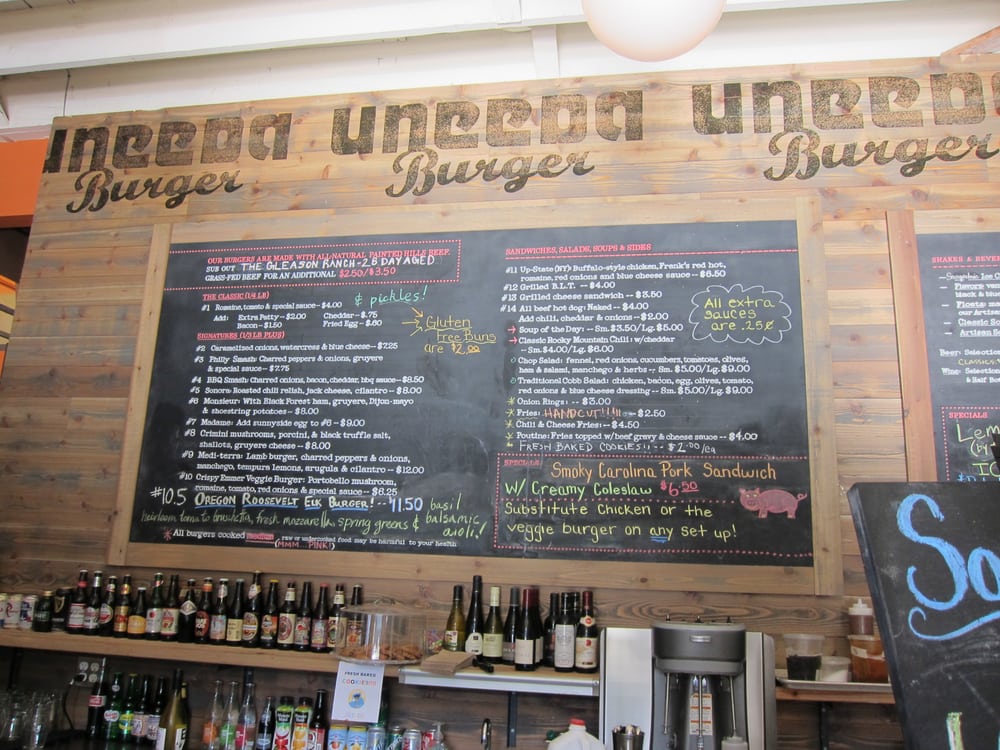 UNEEDA
Burger
UNEEDA
Burger
UNEEDA
Burger
OUR BURGERS ARE MADE WITH ALL-NATURAL PAINTED HILLS BEEF.
SUB OUT THE GLEASON RANCH-28 DAY AGED
GRASS-FED BEEF FOR AN ADDITIONAL $2.50/$3.50
THE CLASSIC (1/4 LB)
& pickles!
#1 Romaine, tomato & special sauce – $4.00
Add: Extra Patty – $2.00 Cheddar – $.75
Bacon – $1.50 Fried Egg – $.60
Gluten
Free Buns
are $2.00
SIGNATURES (1/3 LB PLUS)
#2 Caramelised onions, watercress & blue cheese – $7.25
#3 Philly Smash: Charred peppers & onions, gruyere
& special sauce – $7.75
#4 BBQ Smash: Charred onions, bacon, cheddar, bbq sauce – $8.50
#5 Sonora: Roasted chili relish, jack cheese, cilantro – $8.00
#6 Monsieur: With Black Forest ham, gruyere, Dijon-mayo
& shoestring potatoes – $8.00
#7 Madame: Add sunnyside egg to #6 – $9.00
#8 Crimini mushrooms, porcini, & black truffle salt,
shallots, gruyere cheese – $8.00
#9 Medi-terra: Lamb burger, charred peppers & onions,
manchego, tempura lemons, arugula & cilantro – $12.00
#10 Crispy Emmer Veggie Burger: Portobello mushroom,
romaine, tomato, red onions & special sauce – $8.25
#10.5 OREGON ROOSEVELT ELK BURGER! -- $11.50 basil
heirloom tomato bruschetta, fresh mozzarella, spring greens & balsamic
aioli!
*All burgers cooked medium, raw or undercooked food may be harmful to your health
(MMM...PINK!)
SANDWICHES, SALADS, SOUPS & SIDES
#11 Up-State (NY) Buffalo-style chicken, Frank's red hot,
romaine, red onions and blue cheese sauce – $8.50
#12 Grilled B.L.T. – $4.00
#13 Grilled cheese sandwich – $3.50
#14 All beef hot dog: Naked – $4.00
Add chili, cheddar & onions – $2.00
Soup of the Day: – Sm. $3.50/Lg. $5.00
Classic Rocky Mountain Chili: w/cheddar
– Sm. $4.00/Lg. $6.00
All extra
sauces
are .25¢
Chop Salad: fennel, red onions, cucumbers, tomatoes, olives,
ham & salami, manchego & herbs – Sm. $5.00/Lg. $9.00
Traditional Cobb Salad: chicken, bacon, egg, olives, tomato,
red onions & blue cheese dressing – Sm. $5.00/Lg. $9.00
* Onion Rings: – $3.00
* Fries: HANDCUT!!!!! – $2.50
* Chili & Cheese Fries: – $4.50
* Poutine: Fries topped w/beef gravy & cheese sauce – $4.00
* FRESH BAKED COOKIES!! -- $2.00/ea
SPECIALS
Smoky Carolina Pork Sandwich
W/ Creamy Coleslaw $6.50
Substitute Chicken or the
veggie burger on any set up!
SHAKES & BEVE
Flavors:
black & blu
Floats:
our Artisan
Classic So
Artisan S
Beer: Selection
CLASSICS
Wine: Selection
& Half Bo
SPECIALS
Lem
(by
FRESH BAKED
COOKIES!!!
So